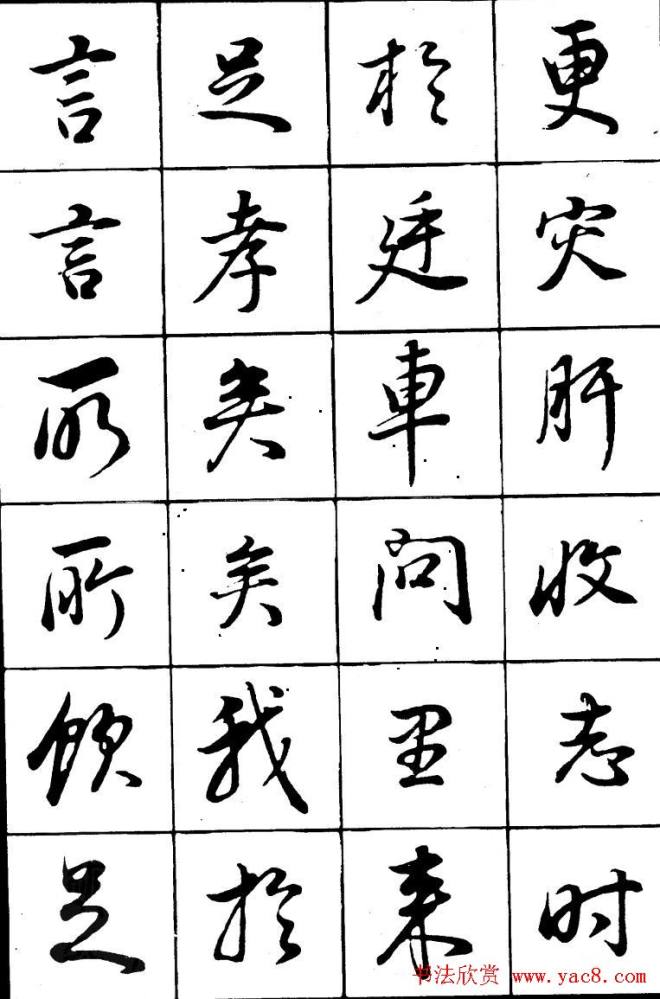 更灾肝收志时
於廷車問里来
足孝矣矣我於
言言所所飲足
书法欣赏 www.yac8.com